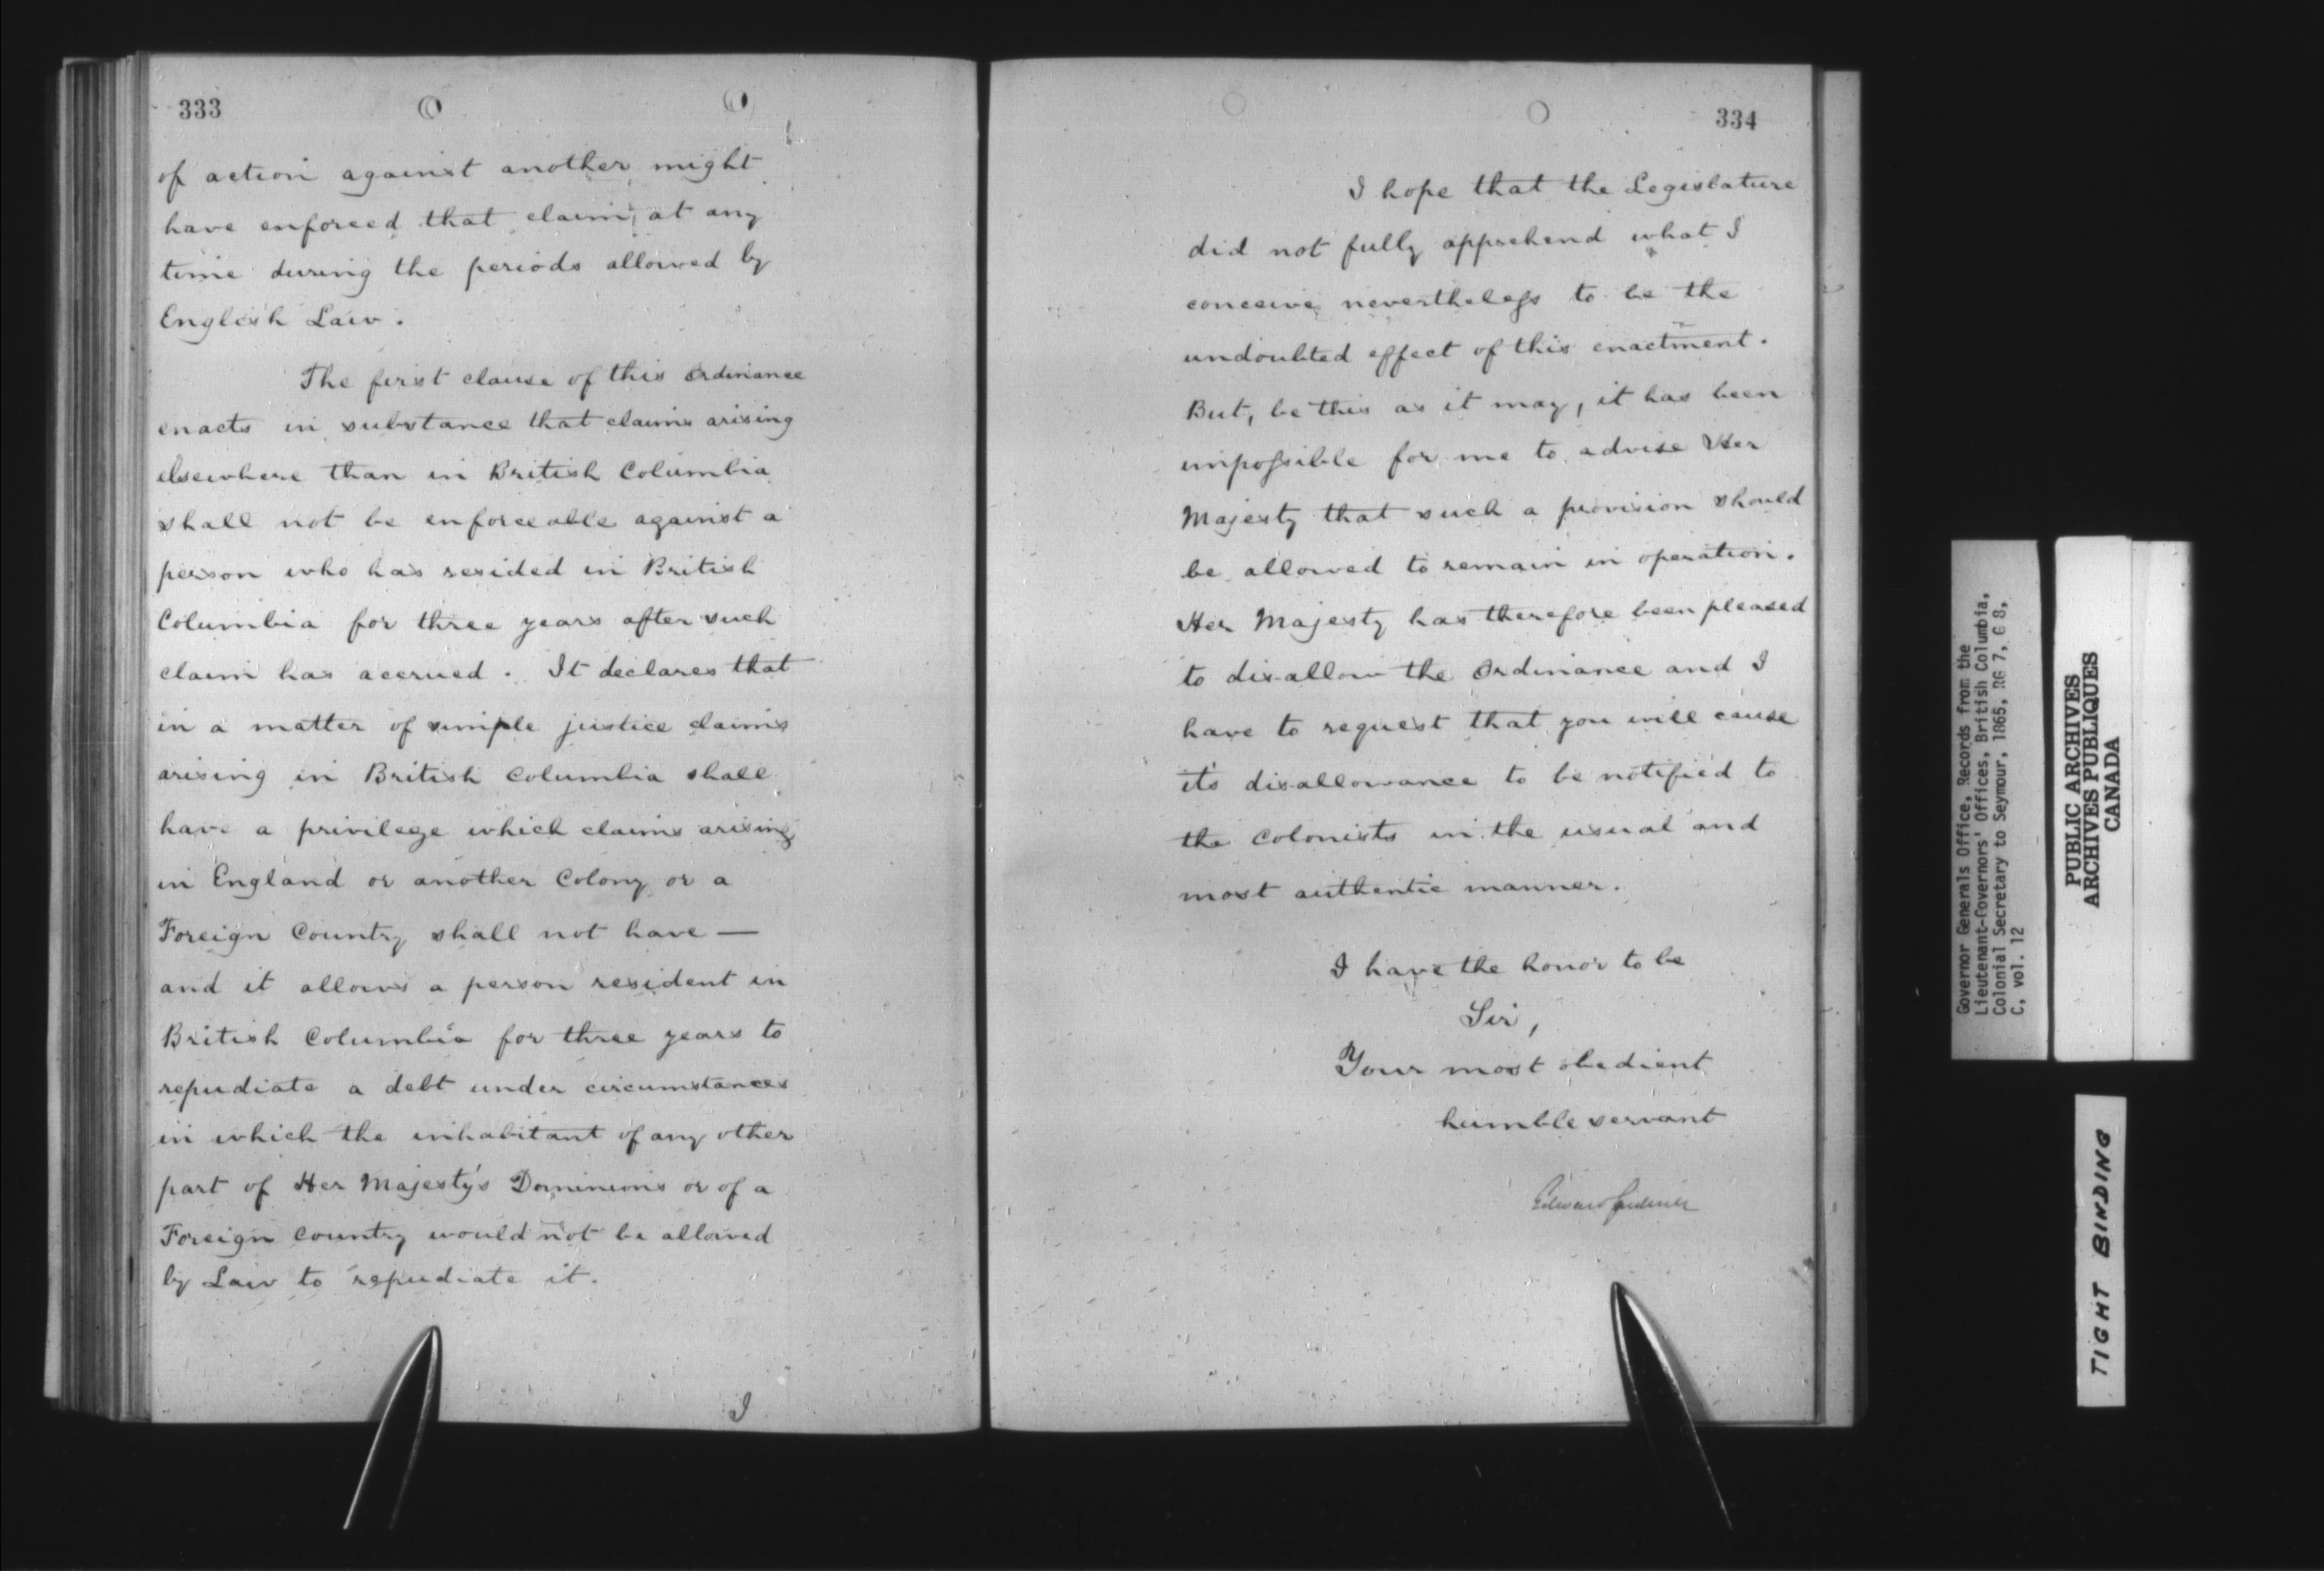 333
of action against another might
have enforced that claim at any
time during the periods allowed by
English Law.
The first clause of this Ordinance
enacts in substance that claims arising
elsewhere than in British Columbia
shall not be enforceable against a
person who has resided in British
Columbia for three years after such
claim has accrued. It declares that
in a matter of simple justice claims
arising in British Columbia shall
have a privilege which claims arising
in England or another Colony or a
Foreign Country shall not have —
and it allows a person resident in
British Columbia for three years to
repudiate a debt under circumstances
in which the inhabitant of any other
part of Her Majesty's Dominions or of a
Foreign Country would not be allowed
by Law to repudiate it.
I
334
I hope that the Legislature
did not fully apprehend what I
conceive nevertheless to be the
undoubted effect of this enactment.
But, be this as it may, it has been
impossible for me to advise Her
Majesty that such a provision should
be allowed to remain in operation.
Her Majesty has therefore been pleased
to dis-allow the Ordinance and I
have to request that you will cause
it's dis-allowance to be notified to
the Colonists in the usual and
most authentic manner.
I have the honor to be
Sir,
Your most obedient
humble servant
Edward Cardwell
Governor Generals Office, Records from the
Lieutenant-Governors' Offices, British Columbia,
Colonial Secretary to Seymour, 1865, RG 7, G 8,
C, vol. 12
PUBLIC ARCHIVES
ARCHIVES PUBLIQUES
CANADA
TIGHT BINDING